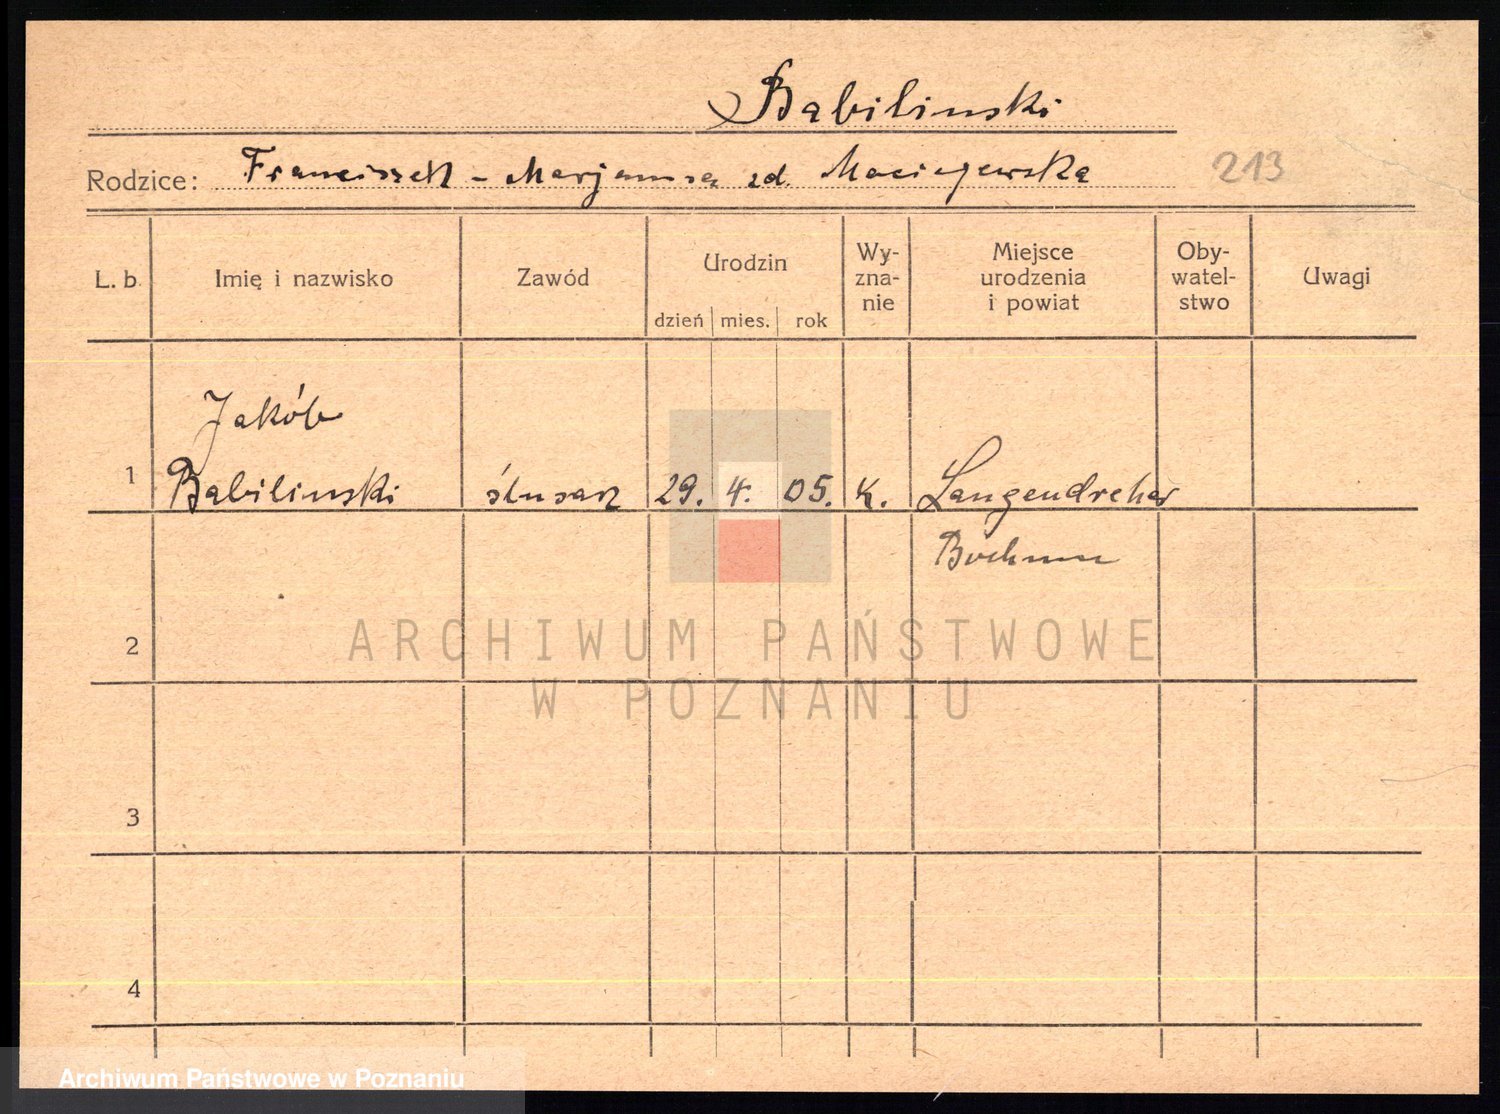 Babilinski
Rodzice: Franciszek - Marjanna zd. Maciejewska 213
L. b. Imię i nazwisko Zawód Urodzin dzień mies. rok Wy-zna-nie Miejsce urodzenia i powiat Oby-watel-stwo Uwagi
Jakób
1 Babilinski ślusarz 29. 4. 05. k. Langendreher
Bochum
2
ARCHIWUM PAŃSTWOWE
W POZNANIU
3
4
Archiwum Państwowe w Poznaniu